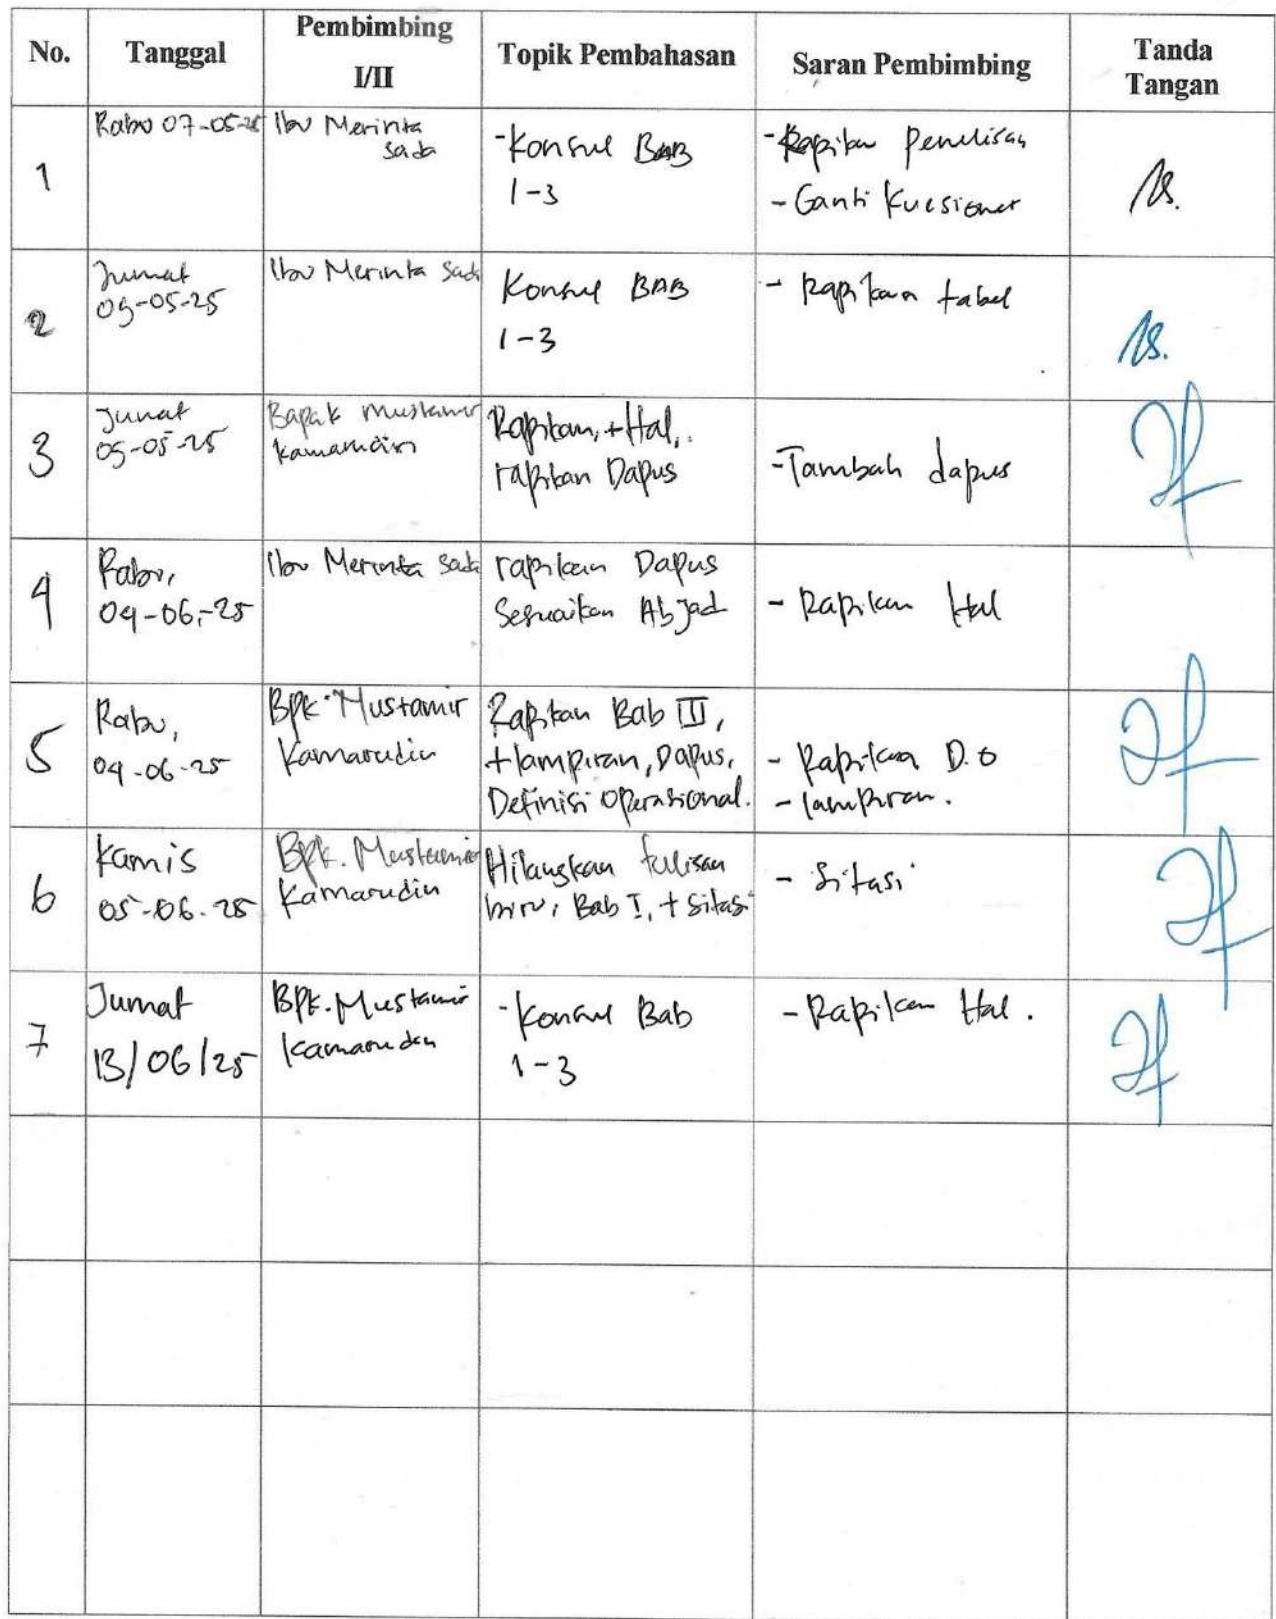 No. Tanggal Pembimbing I/II Topik Pembahasan Saran Pembimbing Tanda Tangan
1 Rabu 07-05-25 Ibu Merinta Sada -Konsul BAB 1-3 -Rapikan Penulisan - Ganti Kuesioner
2 Jumat 09-05-25 Ibu Merinta Sada Konsul BAB 1-3 - Rapikan tabel
3 Jumat 09-05-25 Bapak Mustamir Kamarudin Rapikan, + Hal, rapikan Dapus -Tambah dapus
4 Rabu, 04-06-25 Ibu Merinta Sada rapikan Dapus Sesuaikan Abjad - Rapikan Hal
5 Rabu, 04-06-25 Bpk. Mustamir Kamarudin Rapikan Bab III, + lampiran, Dapus, Definisi Operasional. - Rapikan D.O - lampiran.
6 Kamis 05-06-25 Bpk. Mustamir Kamarudin Hilangkan tulisan biru, Bab I, + Sitasi - Sitasi
7 Jumat 13/06/25 Bpk. Mustamir Kamarudin -Konsul Bab 1-3 - Rapikan Hal.